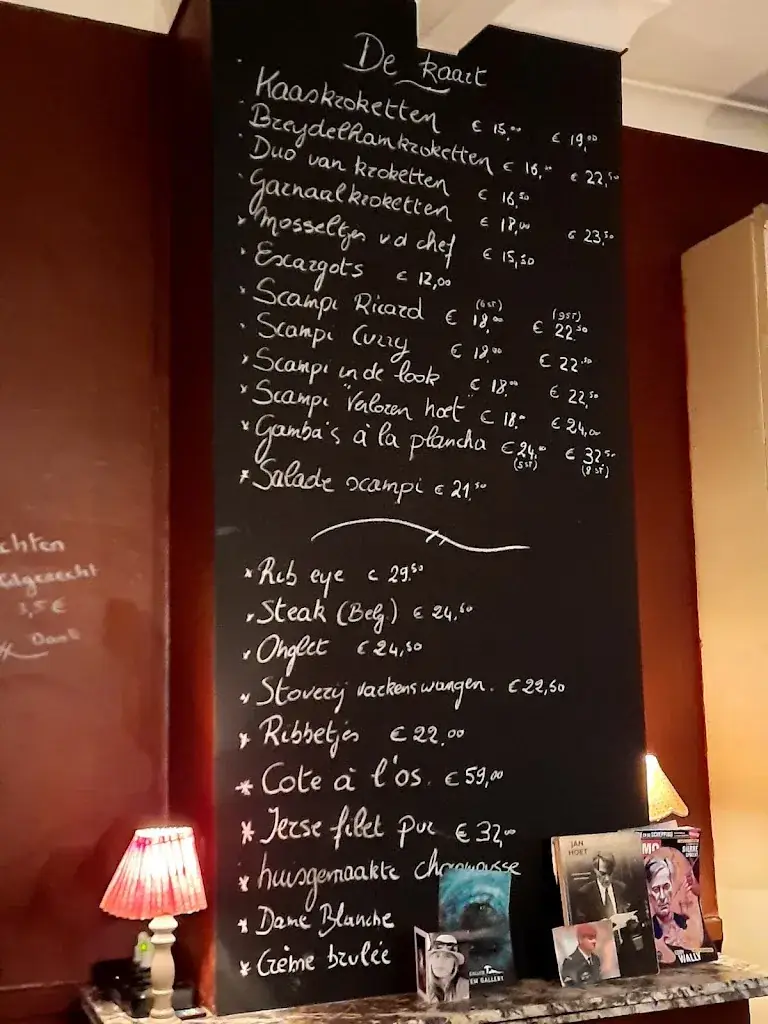 De kaart
· Kaaskroketten € 15,00 € 19,00
· Breydelhamkroketten € 16,- € 22,50
· Duo van kroketten € 16,50
· Garnaalkroketten € 18,00 € 23,50
* Mosseltjes v.d chef € 15,50
· Escargots € 12,00
* Scampi Ricard (6st) € 18,00 (9st) € 22,50
· Scampi Curry € 18,00 € 22,50
* Scampi in de look € 18,00 € 22,50
* Scampi "Verloren hoet" € 18,- € 24,00
* Gamba's à la plancha € 24,- (5st) € 32,50 (8st)
* Salade scampi € 21,50
* Rib eye € 29,50
* Steak (Belg.) € 24,50
* Onglet € 24,50
* Stoverij varkenswangen. € 22,50
* Ribbetjes € 22,00
* Cote à l'os. € 59,00
* Ierse filet pur € 32,00
* huisgemaakte chocomousse
* Dame Blanche
* Crème brulée
chten
3,5 €
Dank
JAN
HOET
WALLY
GALLERY